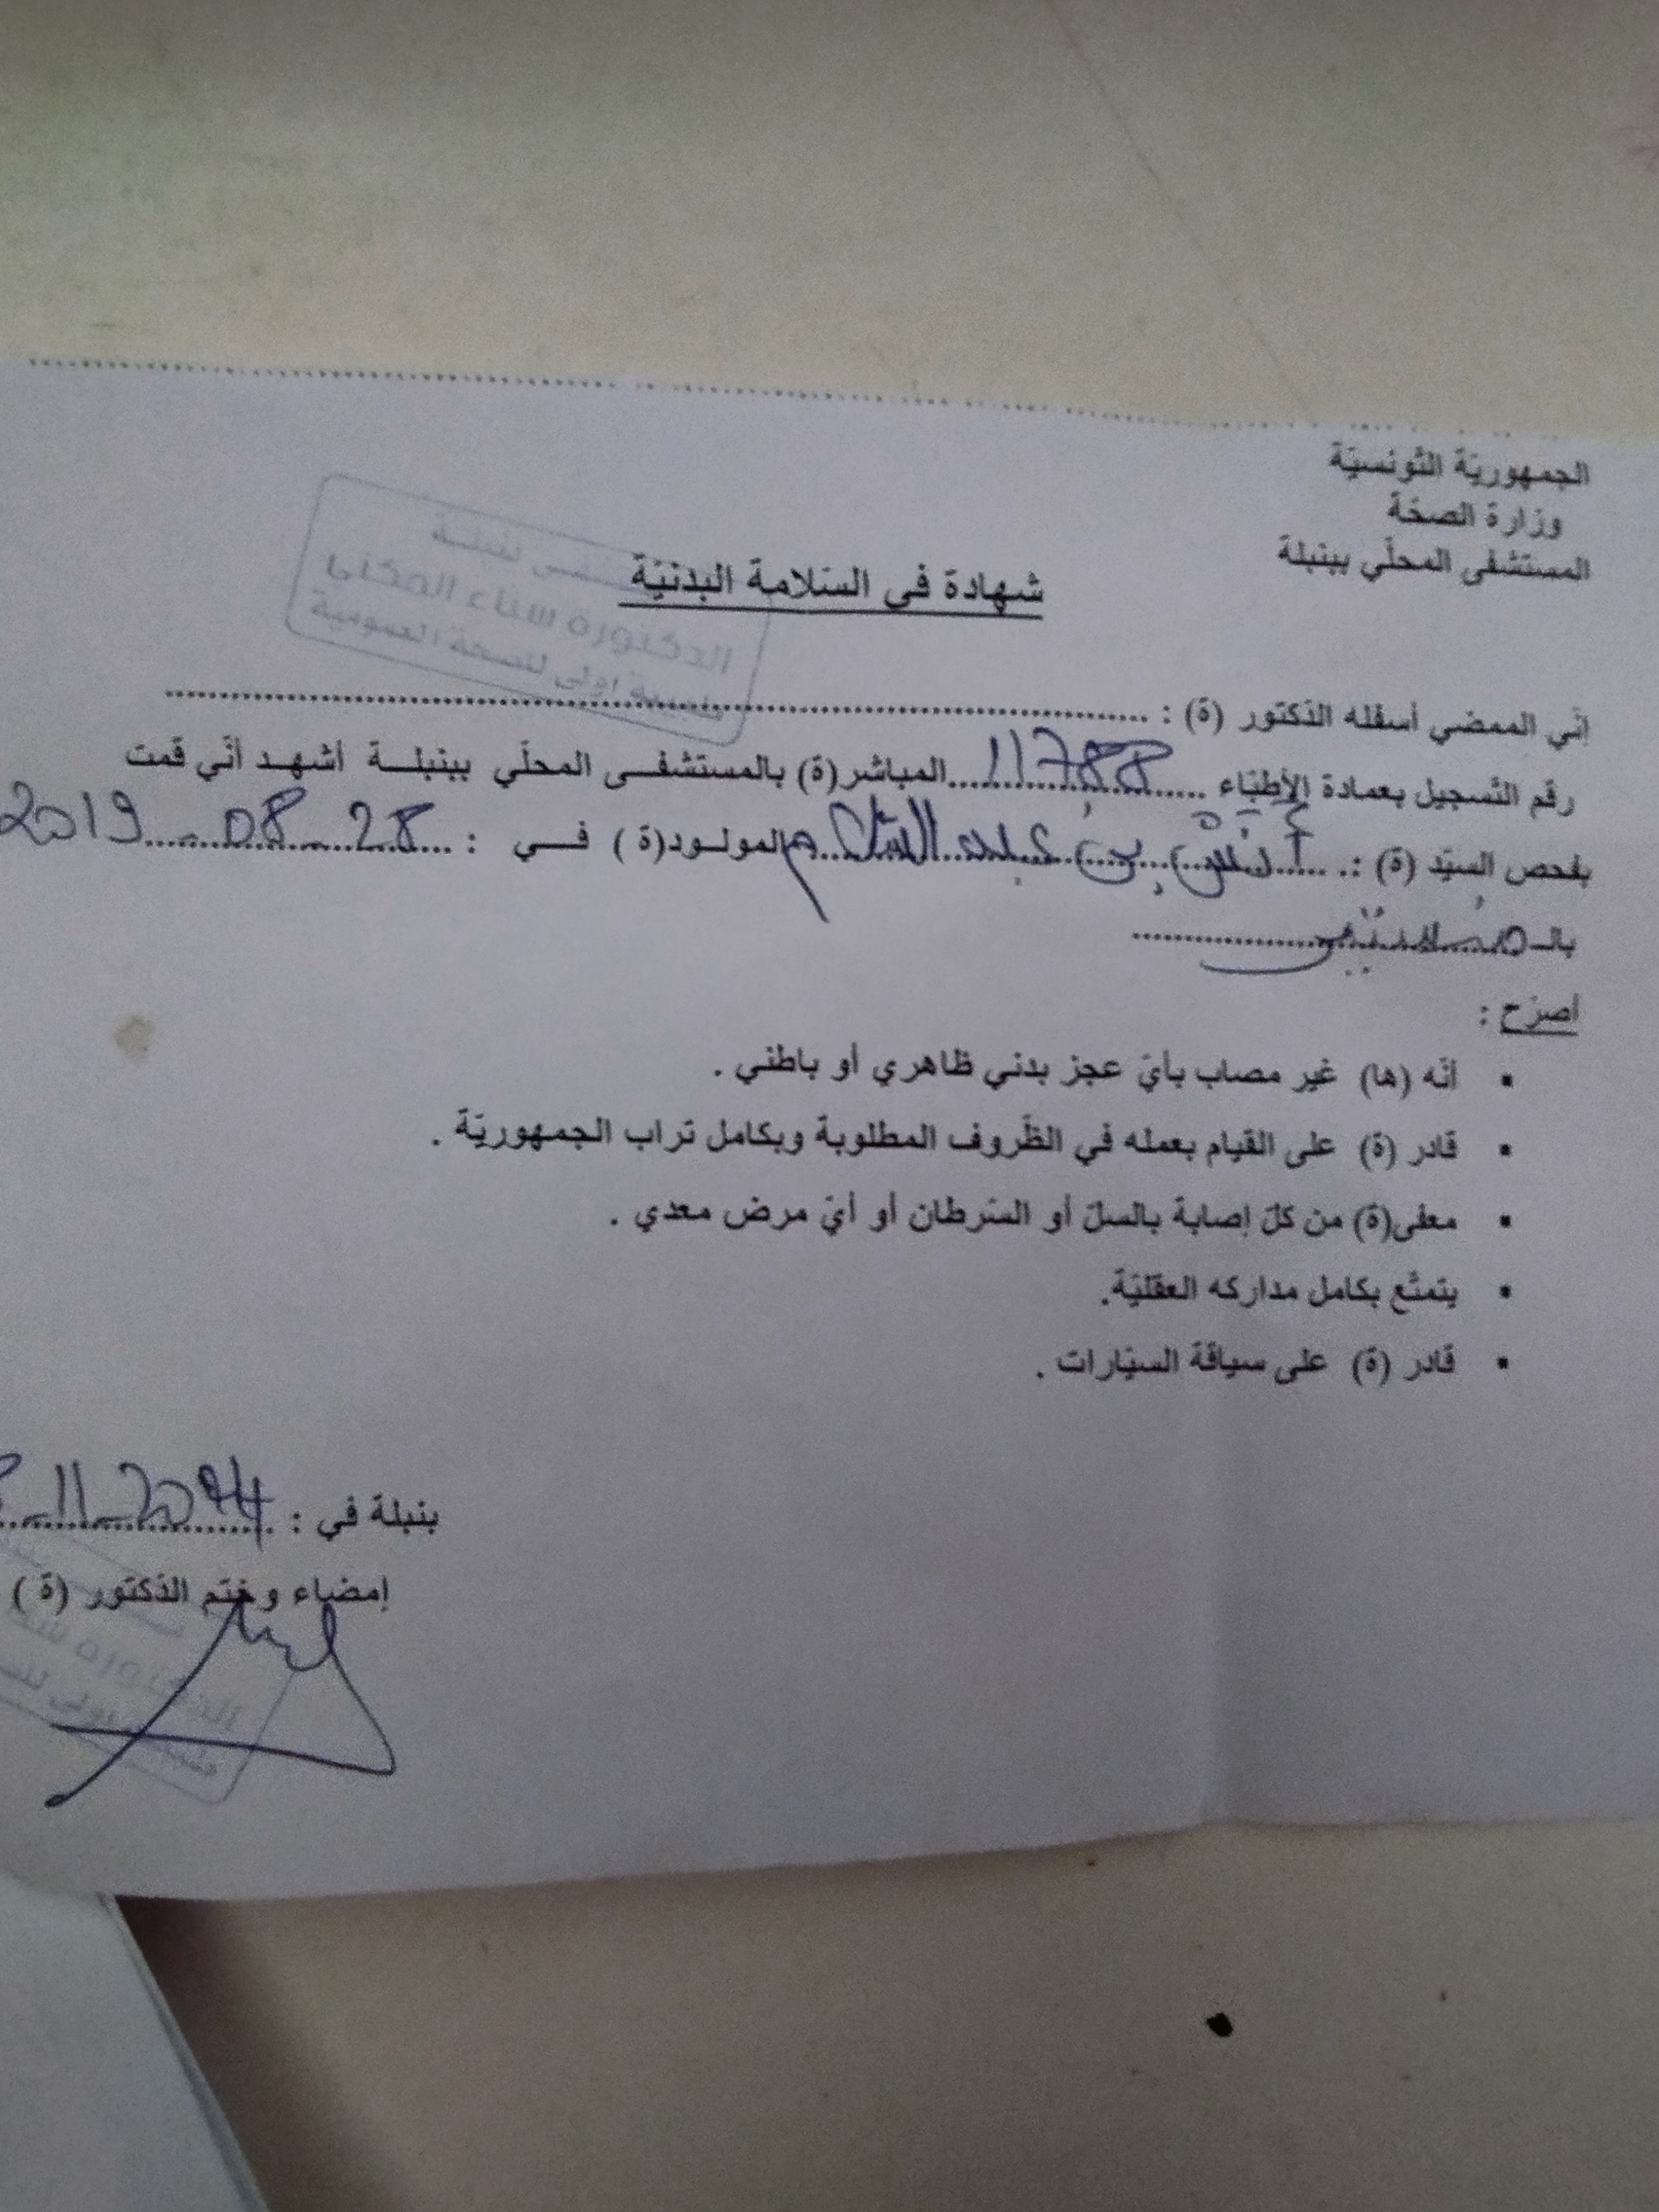 الجمهوريّة التّونسيّة
وزارة الصحّة
المستشفى المحلّي ببنبلة
شهادة في السّلامة البدنيّة
الدكتورة سناء المكني
طبيبة أولى للصحة العمومية
إنّي الممضي أسفله الدّكتور (ة) :
رقم التّسجيل بعمادة الأطبّاء 11788 المباشر(ة) بالمستشفــى المحلّي ببنبلــة أشهــد أنّي قمت
بفحص السيّد (ة) : أنس بن عبد السّلام المولــود(ة ) فــي : 28 08 2019
بالـ
أصرّح :
▪ أنّه (ها) غير مصاب بأيّ عجز بدني ظاهري أو باطني .
▪ قادر (ة) على القيام بعمله في الظّروف المطلوبة وبكامل تراب الجمهوريّة .
▪ معفى(ة) من كلّ إصابة بالسلّ أو السّرطان أو أيّ مرض معدي .
▪ يتمتّع بكامل مداركه العقليّة.
▪ قادر (ة) على سياقة السيّارات .
بنبلة في : 11_2024
إمضاء وختم الدّكتور (ة )